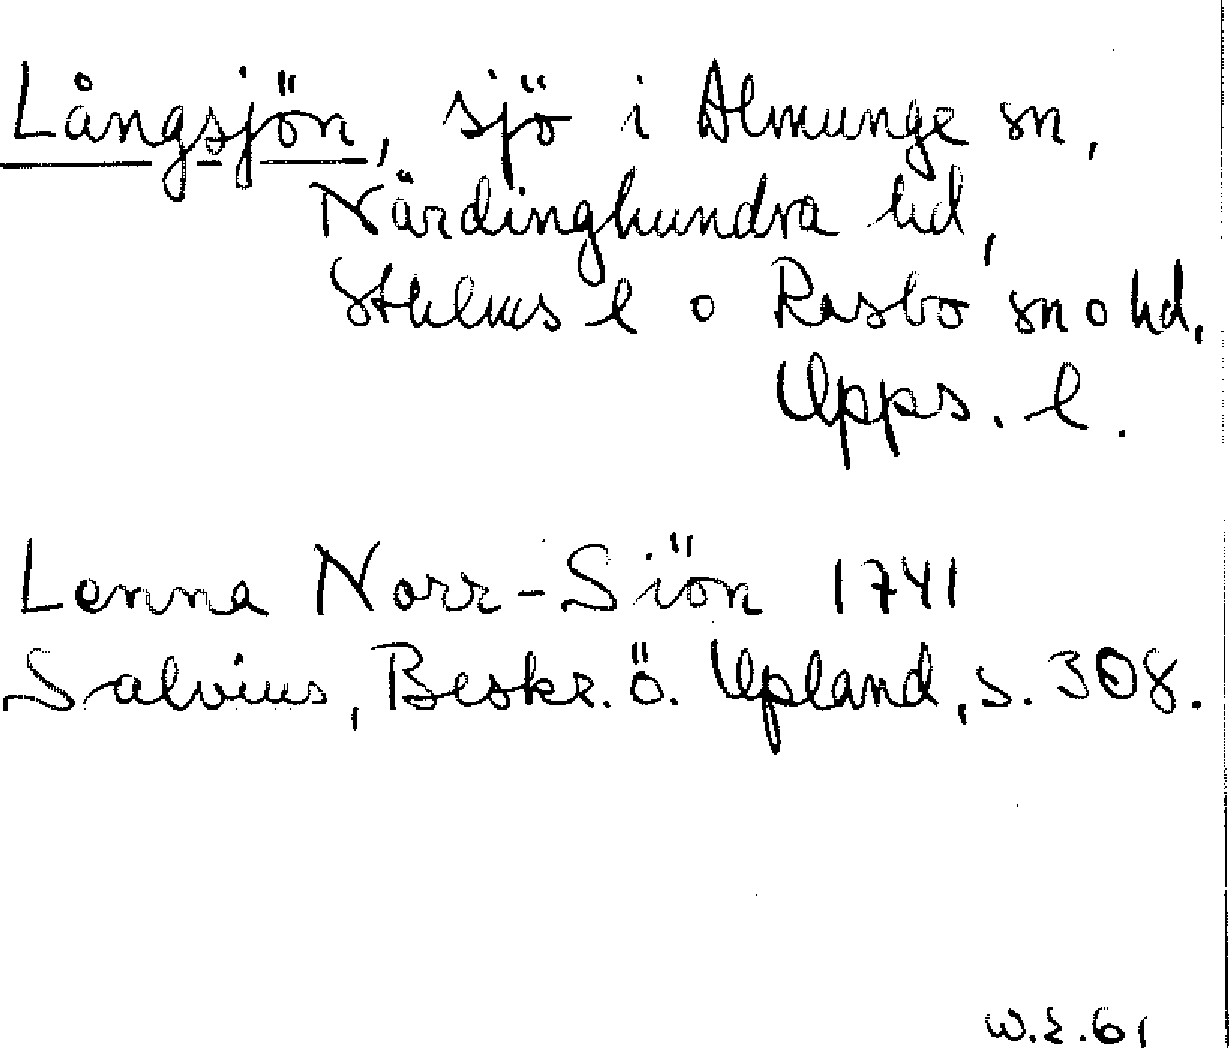 Långsjön, sjö i Almunge sn,
Närdinghundra hd,
Sthlms l o Rasbo sn o hd,
Upps. l.
Lenna Norr-Siön 1741
Salvius, Beskr. ö. Upland, s. 308.
W.E.61